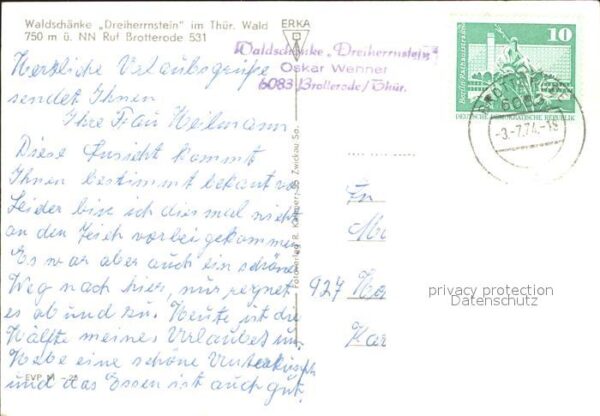 Waldschänke „Dreiherrnstein" im Thür. Wald
750 m ü. NN Ruf Brotterode 531
ERKA
Waldschänke „Dreiherrnstein"
Oskar Wenner
6083 Brotterode/Thür.
10
Berlin, Rathausstraße
DEUTSCHE DEMOKRATISCHE REPUBLIK
-3.-7.74.-19
Herzliche Urlaubsgrüße
sendet Ihnen
Ihre Frau Heilmann.
Diese Ansicht kommt
Ihnen bestimmt bekant vor
Leider bin ich diesmal nicht
an den Teich vorbei gekommen
Es war aber auch ein schöner
Weg nach hier, nur regnet
es ab und zu. Heute ist die
Hälfte meines Urlaubes um.
Habe eine schöne Unterkunft
und das Essen ist auch gut.
EVP M -,20
Zwickau Sa.
927
privacy protection
Datenschutz